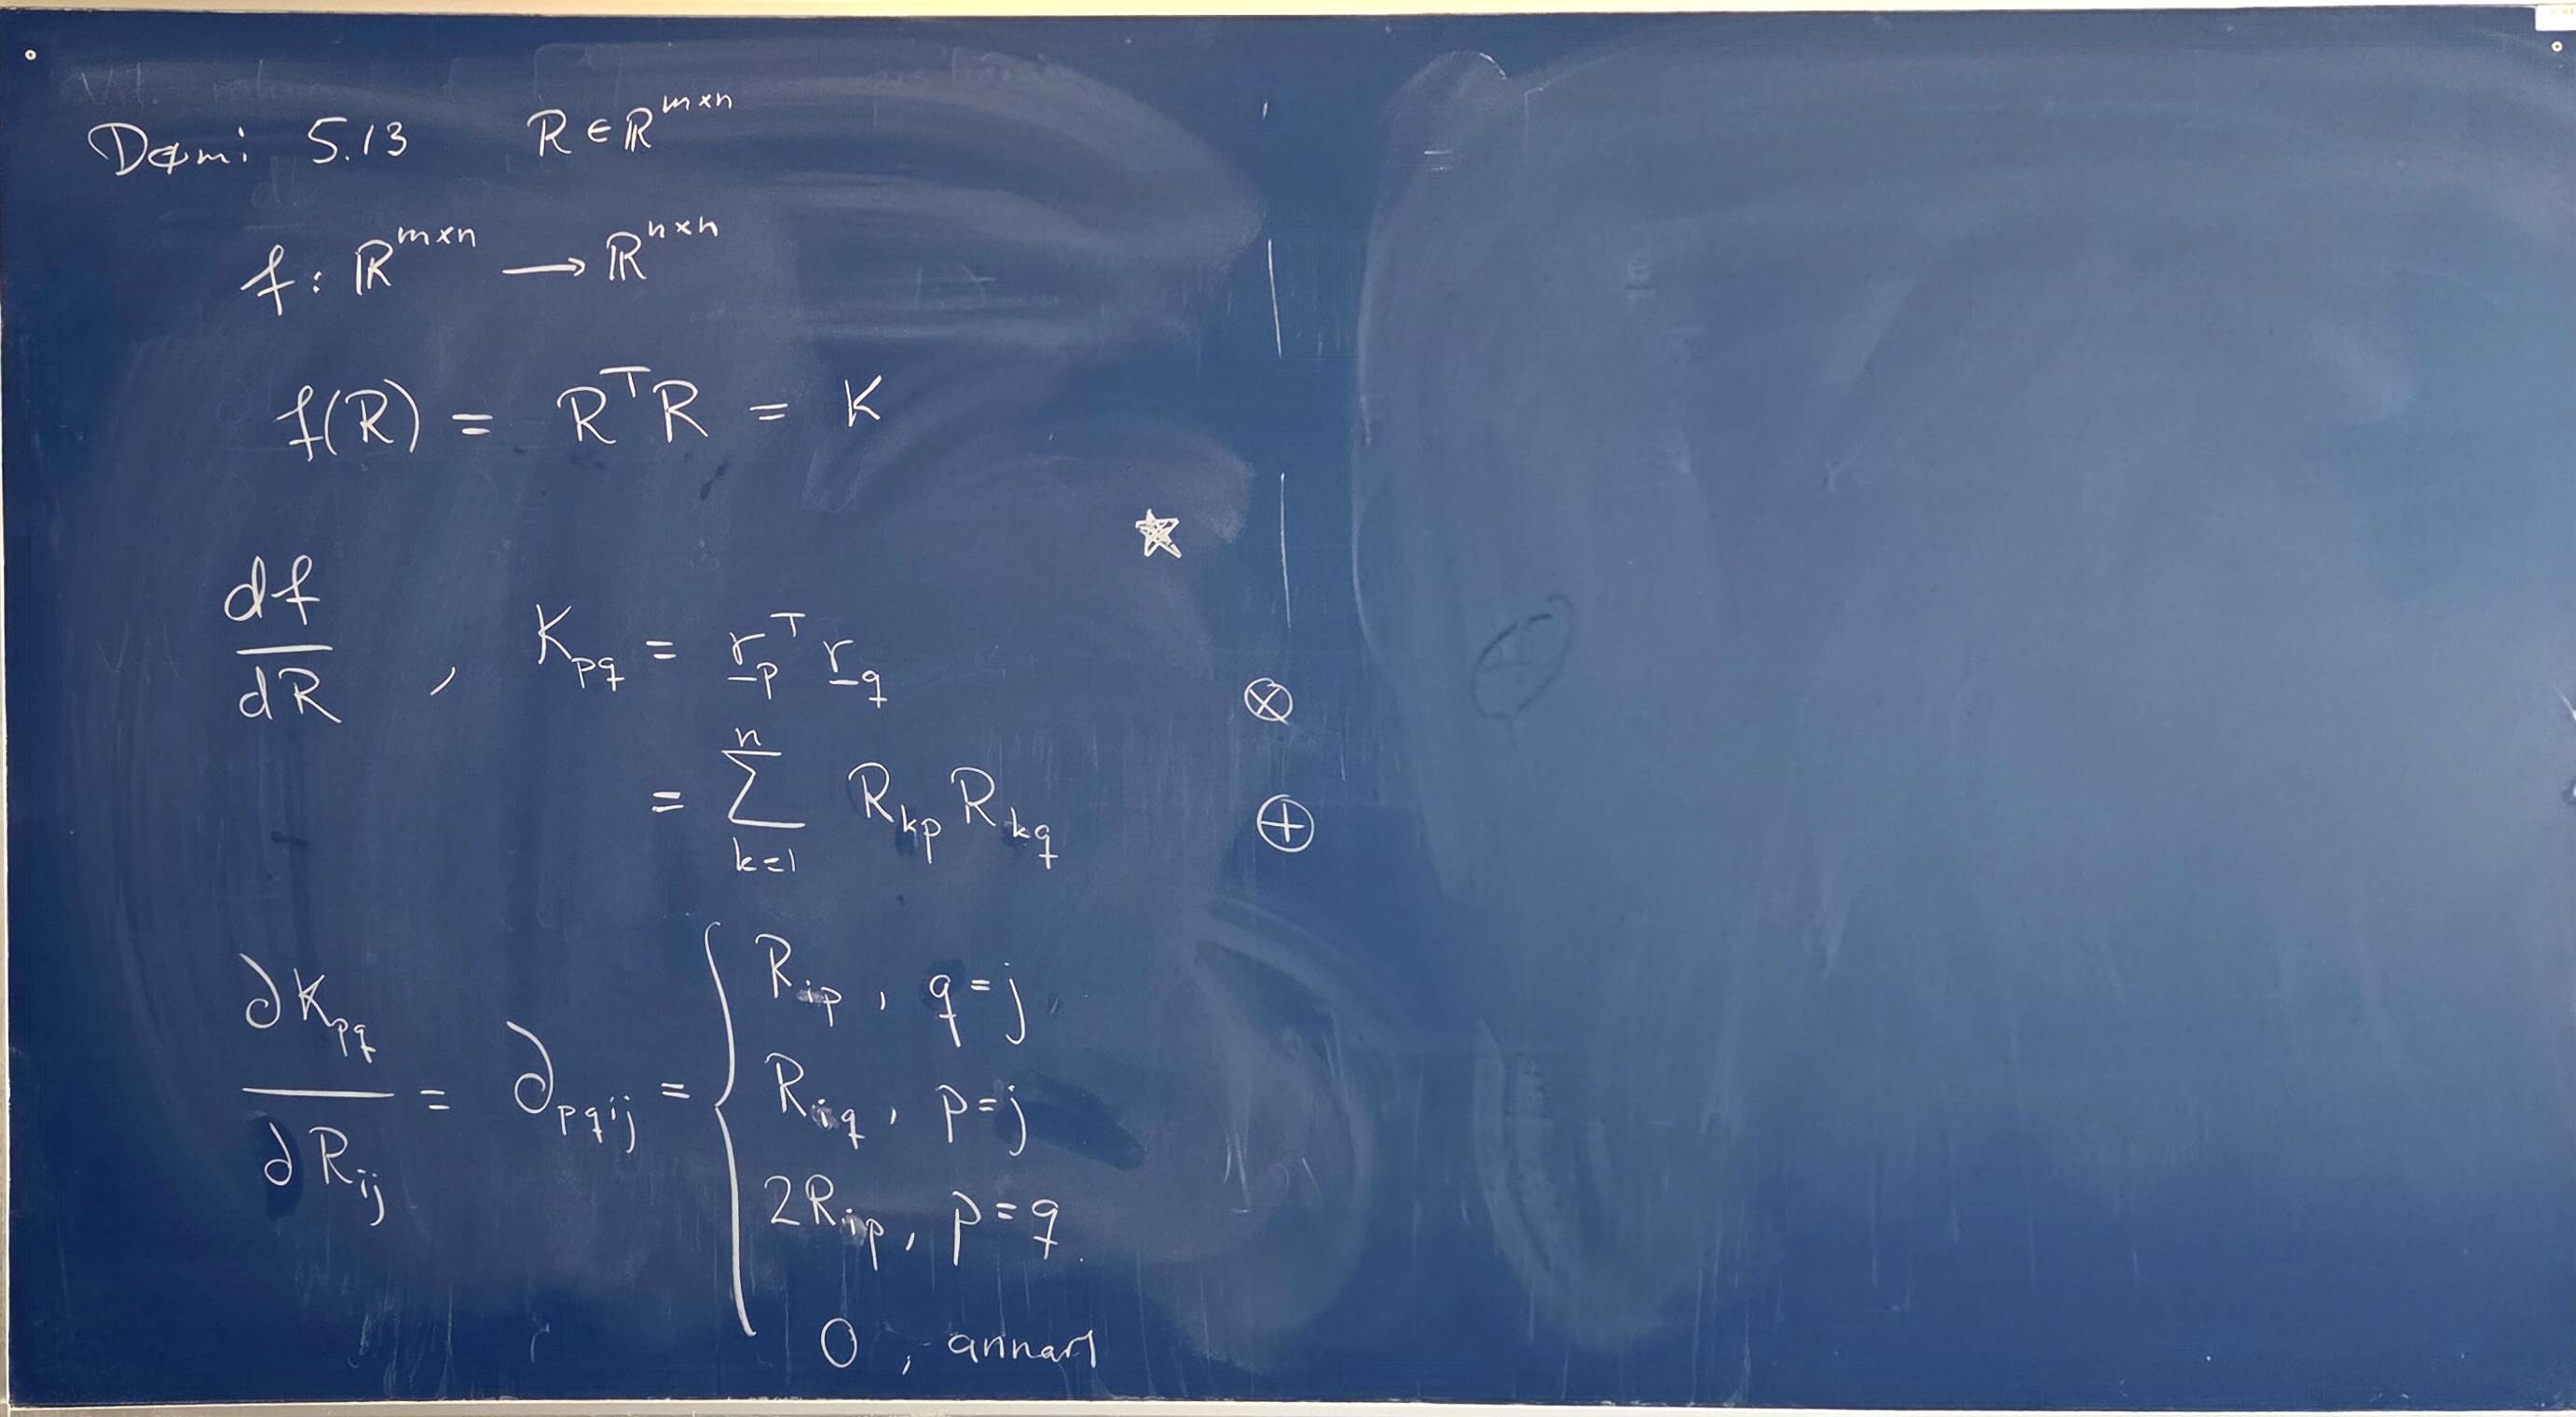 Dæmi 5.13 R ∈ ℝ^{m×n}
f : ℝ^{m×n} → ℝ^{n×n}
f(R) = R^T R = K
df/dR , K_{pq} = r_p^T r_q
= ∑_{k=1}^{n} R_{kp} R_{kq}
∂K_{pq}/∂R_{ij} = ∂_{pqij} = { R_{ip} , q = j
R_{iq} , p = j
2R_{ip} , p = q
0 , annars